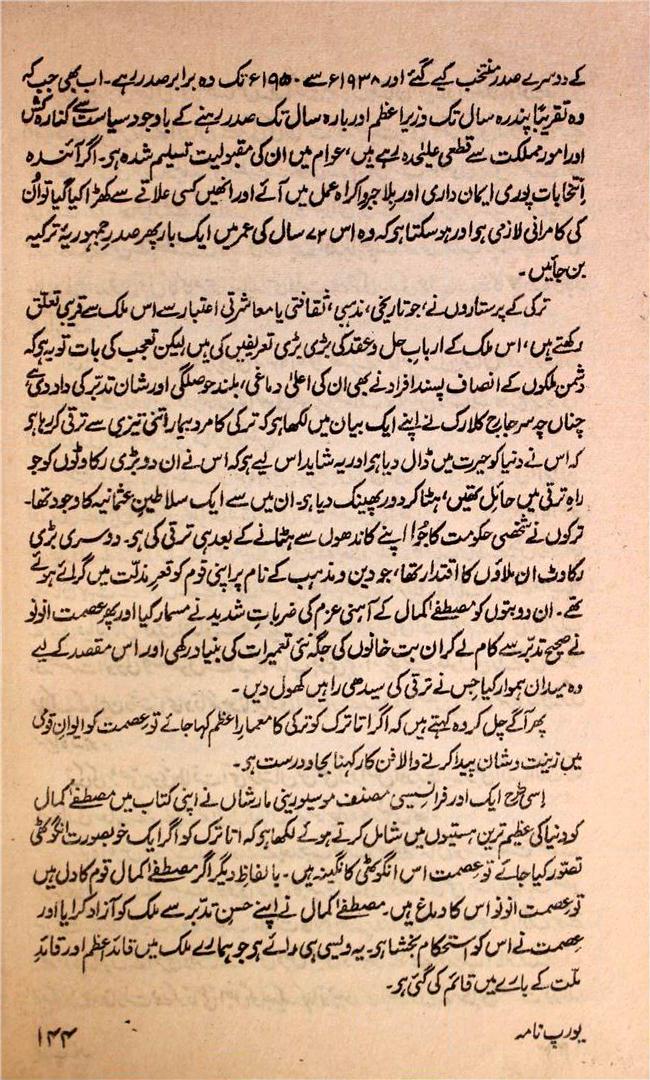 کے دوسرے صدر منتخب کیے گئے اور ۱۹۳۸ء سے ۱۹۵۰ء تک وہ برابر صدر رہے۔ اب بھی جب کہ
وہ تقریباً پندرہ سال تک وزیر اعظم اور بارہ سال تک صدر رہنے کے باوجود سیاست سے کنارہ کش
اور امور مملکت سے قطعی علیٰحدہ رہے ہیں، عوام میں ان کی مقبولیت تسلیم شدہ ہو۔ اگر آئندہ
انتخابات پوری ایمان داری اور بلا جبر و اکراہ عمل میں آئے اور انھیں کسی علاقے سے کھڑا کیا گیا تو اُن
کی کامرانی لازمی ہو اور ہو سکتا ہو کہ وہ اس ۷۲ سال کی عمر میں ایک بار پھر صدر جمہوریۂ ترکیہ
بن جائیں۔
ترکی کے پرستاروں نے، جو تاریخی، مذہبی، ثقافتی یا معاشرتی اعتبار سے اس ملک سے قریبی تعلق
رکھتے ہیں، اس ملک کے ارباب حل و عقد کی بڑی بڑی تعریفیں کی ہیں لیکن تعجب کی بات تو یہ ہو کہ
دشمن ملکوں کے انصاف پسند افراد نے بھی ان کی اعلیٰ دماغی، بلند حوصلگی اور شان تدبّر کی داد دی ہے
چناں چہ سر جارج کلارک نے اپنے ایک بیان میں لکھا ہو کہ ترکی کا مرد بیمار اتنی تیزی سے ترقی کر رہا ہو
کہ اس نے دنیا کو حیرت میں ڈال دیا ہو اور یہ شاید اس لیے ہو کہ اس نے ان دو بڑی رکاوٹوں کو جو
راہِ ترقی میں حائل تھیں، ہٹا کر دور پھینک دیا ہو۔ ان میں سے ایک سلاطینِ عثمانیہ کا وجود تھا۔
ترکوں نے شخصی حکومت کا جُوا اپنے کاندھوں سے ہٹانے کے بعد ہی ترقی کی ہو۔ دوسری بڑی
رکاوٹ ان ملاؤں کا اقتدار تھا، جو دین و مذہب کے نام پر اپنی قوم کو قعرِ مذلّت میں گرائے ہوئے
تھے۔ ان دو بتوں کو مصطفےٰ کمال کے آہنی عزم کی ضرباتِ شدید نے مسمار کیا اور پھر عصمت انونو
نے صحیح تدبّر سے کام لے کر ان بت خانوں کی جگہ نئی تعمیرات کی بنیاد رکھی اور اس مقصد کے لیے
وہ میدان ہموار کیا جس نے ترقی کی سیدھی راہیں کھول دیں۔
پھر آگے چل کر وہ کہتے ہیں کہ اگر اتاترک کو ترکی کا معمارِ اعظم کہا جائے تو عصمت کو ایوانِ قومی
میں زینت و شان پیدا کرنے والا فن کار کہنا بجا و درست ہو۔
اسی طرح ایک اور فرانسیسی مصنف موسیو رینی مارشاں نے اپنی کتاب میں مصطفےٰ کمال
کو دنیا کی عظیم ترین ہستیوں میں شامل کرتے ہوئے لکھا ہو کہ اتاترک کو اگر ایک خوبصورت انگوٹھی
تصور کیا جائے تو عصمت اس انگوٹھی کا نگینہ ہیں۔ بالفاظِ دیگر اگر مصطفےٰ کمال قوم کا دل ہیں
تو عصمت انونو اس کا دماغ ہیں۔ مصطفےٰ کمال نے اپنے حسن تدبّر سے ملک کو آزاد کرایا اور
عصمت نے اس کو استحکام بخشا ہو۔ یہ ویسی ہی رائے ہو جو ہمارے ملک میں قائد اعظم اور قائدِ
ملت کے بارے میں قائم کی گئی ہو۔
یورپ نامہ
۱۴۴